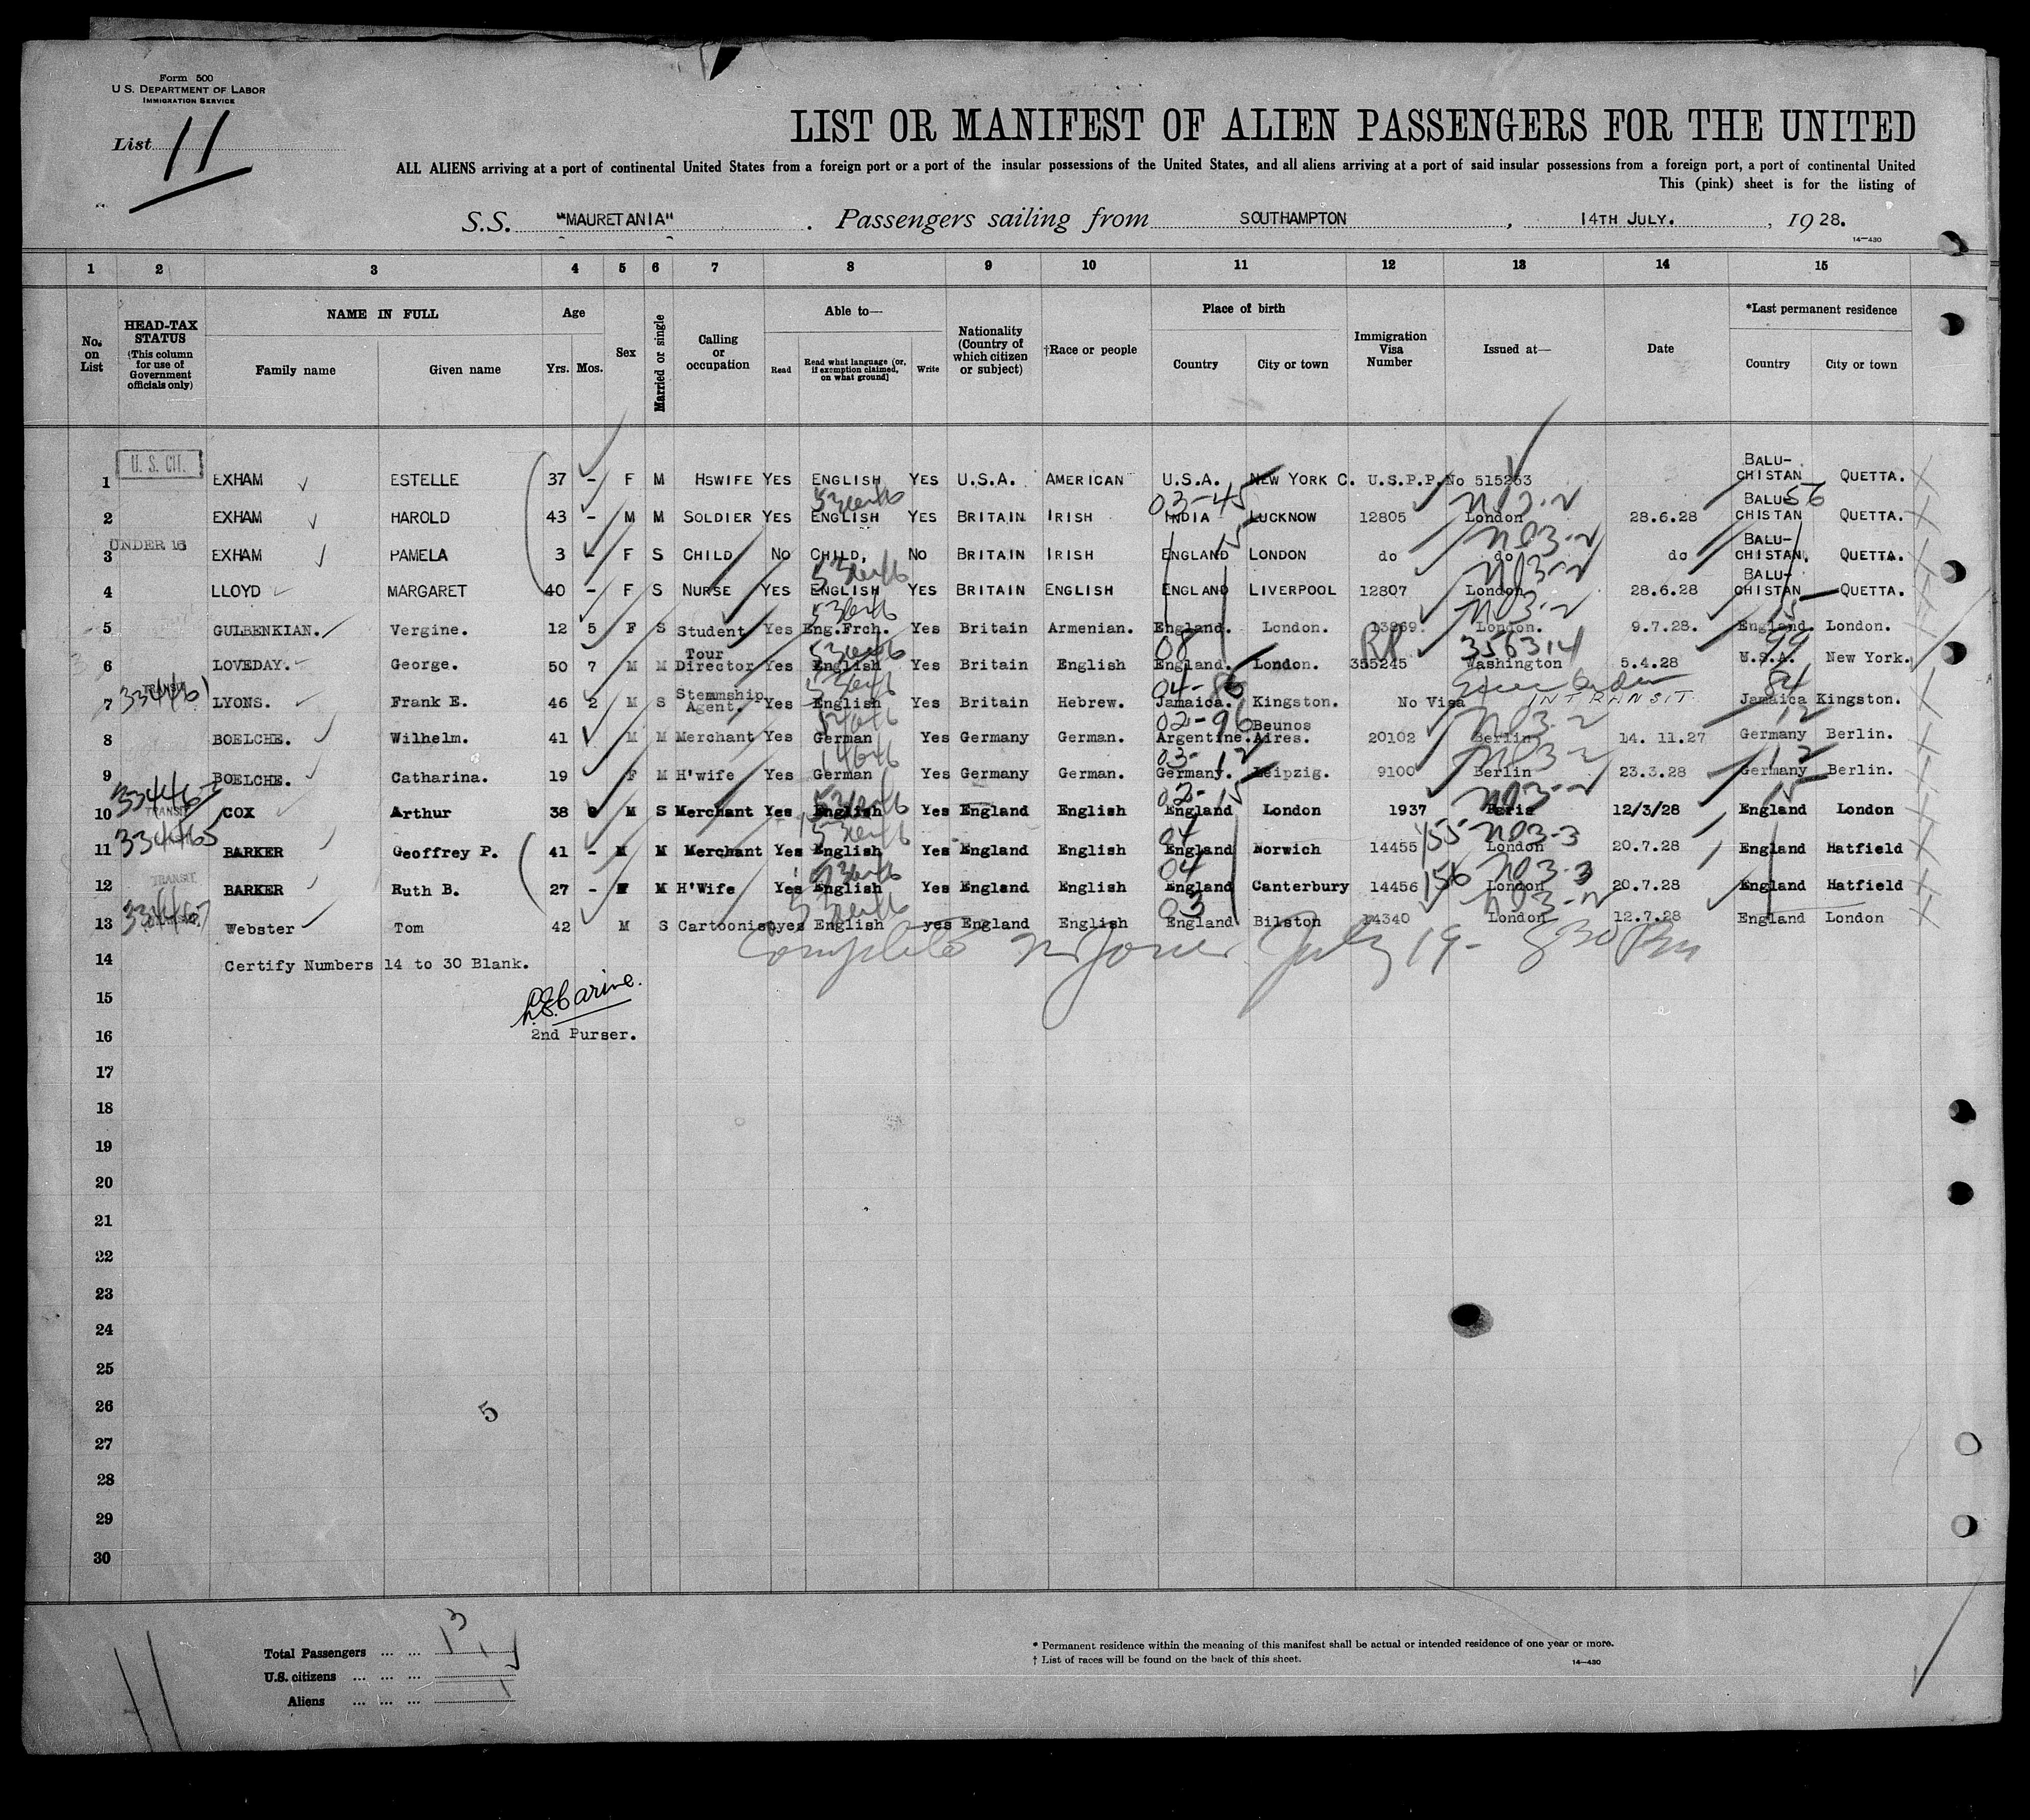 Form 500
U.S. DEPARTMENT OF LABOR
IMMIGRATION SERVICE
List 11
LIST OR MANIFEST OF ALIEN PASSENGERS FOR THE UNITED
ALL ALIENS arriving at a port of continental United States from a foreign port or a port of the insular possessions of the United States, and all aliens arriving at a port of said insular possessions from a foreign port, a port of continental United
This (pink) sheet is for the listing of
S.S. "MAURETANIA" . Passengers sailing from SOUTHAMPTON , 14TH JULY. , 1928.
14—430
1 2 3 4 5 6 7 8 9 10 11 12 13 14 15
No. on List
HEAD-TAX STATUS (This column for use of Government officials only)
NAME IN FULL Family name Given name
Age Yrs. Mos.
Sex
Married or single
Calling or occupation
Able to— Read Read what language (or, if exemption claimed, on what ground) Write
Nationality (Country of which citizen or subject)
†Race or people
Place of birth Country City or town
Immigration Visa Number
Issued at—
Date
*Last permanent residence Country City or town
1 U. S. CIT. EXHAM ESTELLE 37 - F M HSWIFE YES ENGLISH YES U.S.A. AMERICAN U.S.A. NEW YORK C. U.S.P.P. No 515263 BALU-CHISTAN QUETTA.
2 EXHAM HAROLD 43 - M M SOLDIER YES ENGLISH YES BRITAIN IRISH 03-45 INDIA LUCKNOW 12805 London 28.6.28 BALU-CHISTAN 56 QUETTA.
3 UNDER 16 EXHAM PAMELA 3 - F S CHILD NO CHILD. NO BRITAIN IRISH ENGLAND LONDON do do do BALU-CHISTAN. QUETTA.
4 LLOYD MARGARET 40 - F S NURSE YES ENGLISH YES BRITAIN ENGLISH ENGLAND LIVERPOOL 12807 London 28.6.28 BALU-CHISTAN QUETTA.
5 GULBENKIAN. Vergine. 12 5 F S Student Yes Eng.Frch. Yes Britain Armenian. England. London. 13869. London. 9.7.28. England. London.
6 LOVEDAY. George. 50 7 M M Tour Director Yes English Yes Britain English 08 England. London. RP 355245 356314 Washington 5.4.28 99 U.S.A. New York.
7 334461 LYONS. Frank E. 46 2 M S Steamship Agent. Yes English Yes Britain Hebrew. 04-86 Jamaica. Kingston. No Visa IN TRANSIT 84 Jamaica Kingston.
8 BOELCHE. Wilhelm. 41 M M Merchant Yes German Yes Germany German. 02-96 Argentine. Beunos Aires. 20102 Berlin 14. 11.27 12 Germany Berlin.
9 BOELCHE. Catharina. 19 F M H'wife Yes German Yes Germany German. 03-12 Germany. Leipzig. 9100 Berlin 23.3.28 12 Germany Berlin.
10 TRANSIT COX Arthur 38 M S Merchant Yes English Yes England English 02-15 England London 1937 Paris 12/3/28 15 England London
11 334465 BARKER Geoffrey P. 41 - M M Merchant Yes English Yes England English 04 England Norwich 14455 155 London 20.7.28 England Hatfield
12 TRANSIT BARKER Ruth B. 27 - F M H'Wife Yes English Yes England English 04 England Canterbury 14456 156 London 20.7.28 England Hatfield
13 334467 Webster Tom 42 M S Cartoonist yes English yes England English 03 England Bilston 14340 London 12.7.28 England London
Complete July 19- 830 Pm
14 Certify Numbers 14 to 30 Blank.
15
16 2nd Purser.
17
18
19
20
21
22
23
24
25
26 5
27
28
29
30
Total Passengers ... ... 13
U.S. citizens ... ... ...
Aliens ... ... ...
* Permanent residence within the meaning of this manifest shall be actual or intended residence of one year or more.
† List of races will be found on the back of this sheet.
14—430